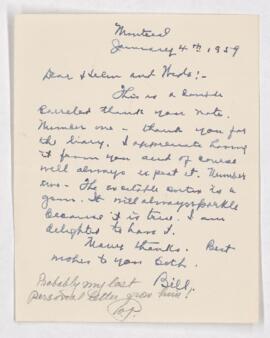 Montreal
January 4th 1959
Dear Helen and Wods:-
This is a double
barreled thank you note.
Number one - thank you for
the diary. I appreciate having
it from you and of course
will always expect it. Number
two - The quotation is a
gem. It will always sparkle
because it is true. I am
delighted to have it.
Many thanks. Best
wishes to you both.
Bill.
Probably my last
personal letter from him!